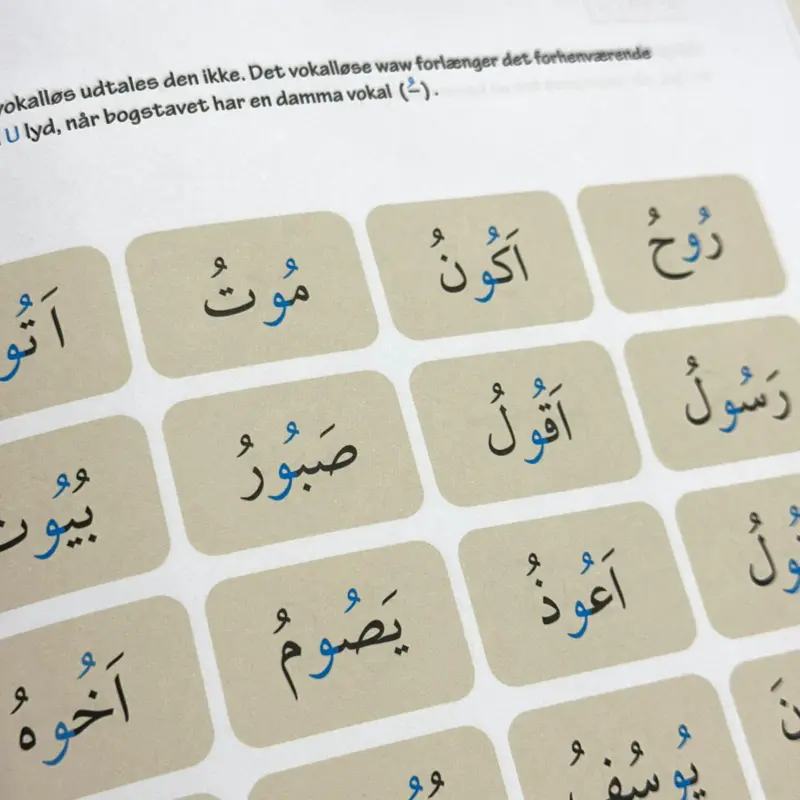 vokalløs udtales den ikke. Det vokalløse waw forlænger det forhenværende
U lyd, når bogstavet har en damma vokal (ـُ).
رُوحُ اَكُونُ مُوتُ
رَسُولُ اَقُولُ صَبُورُ
اَعُوذُ يَصُومُ اَخُوهُ
يُوسُفُ